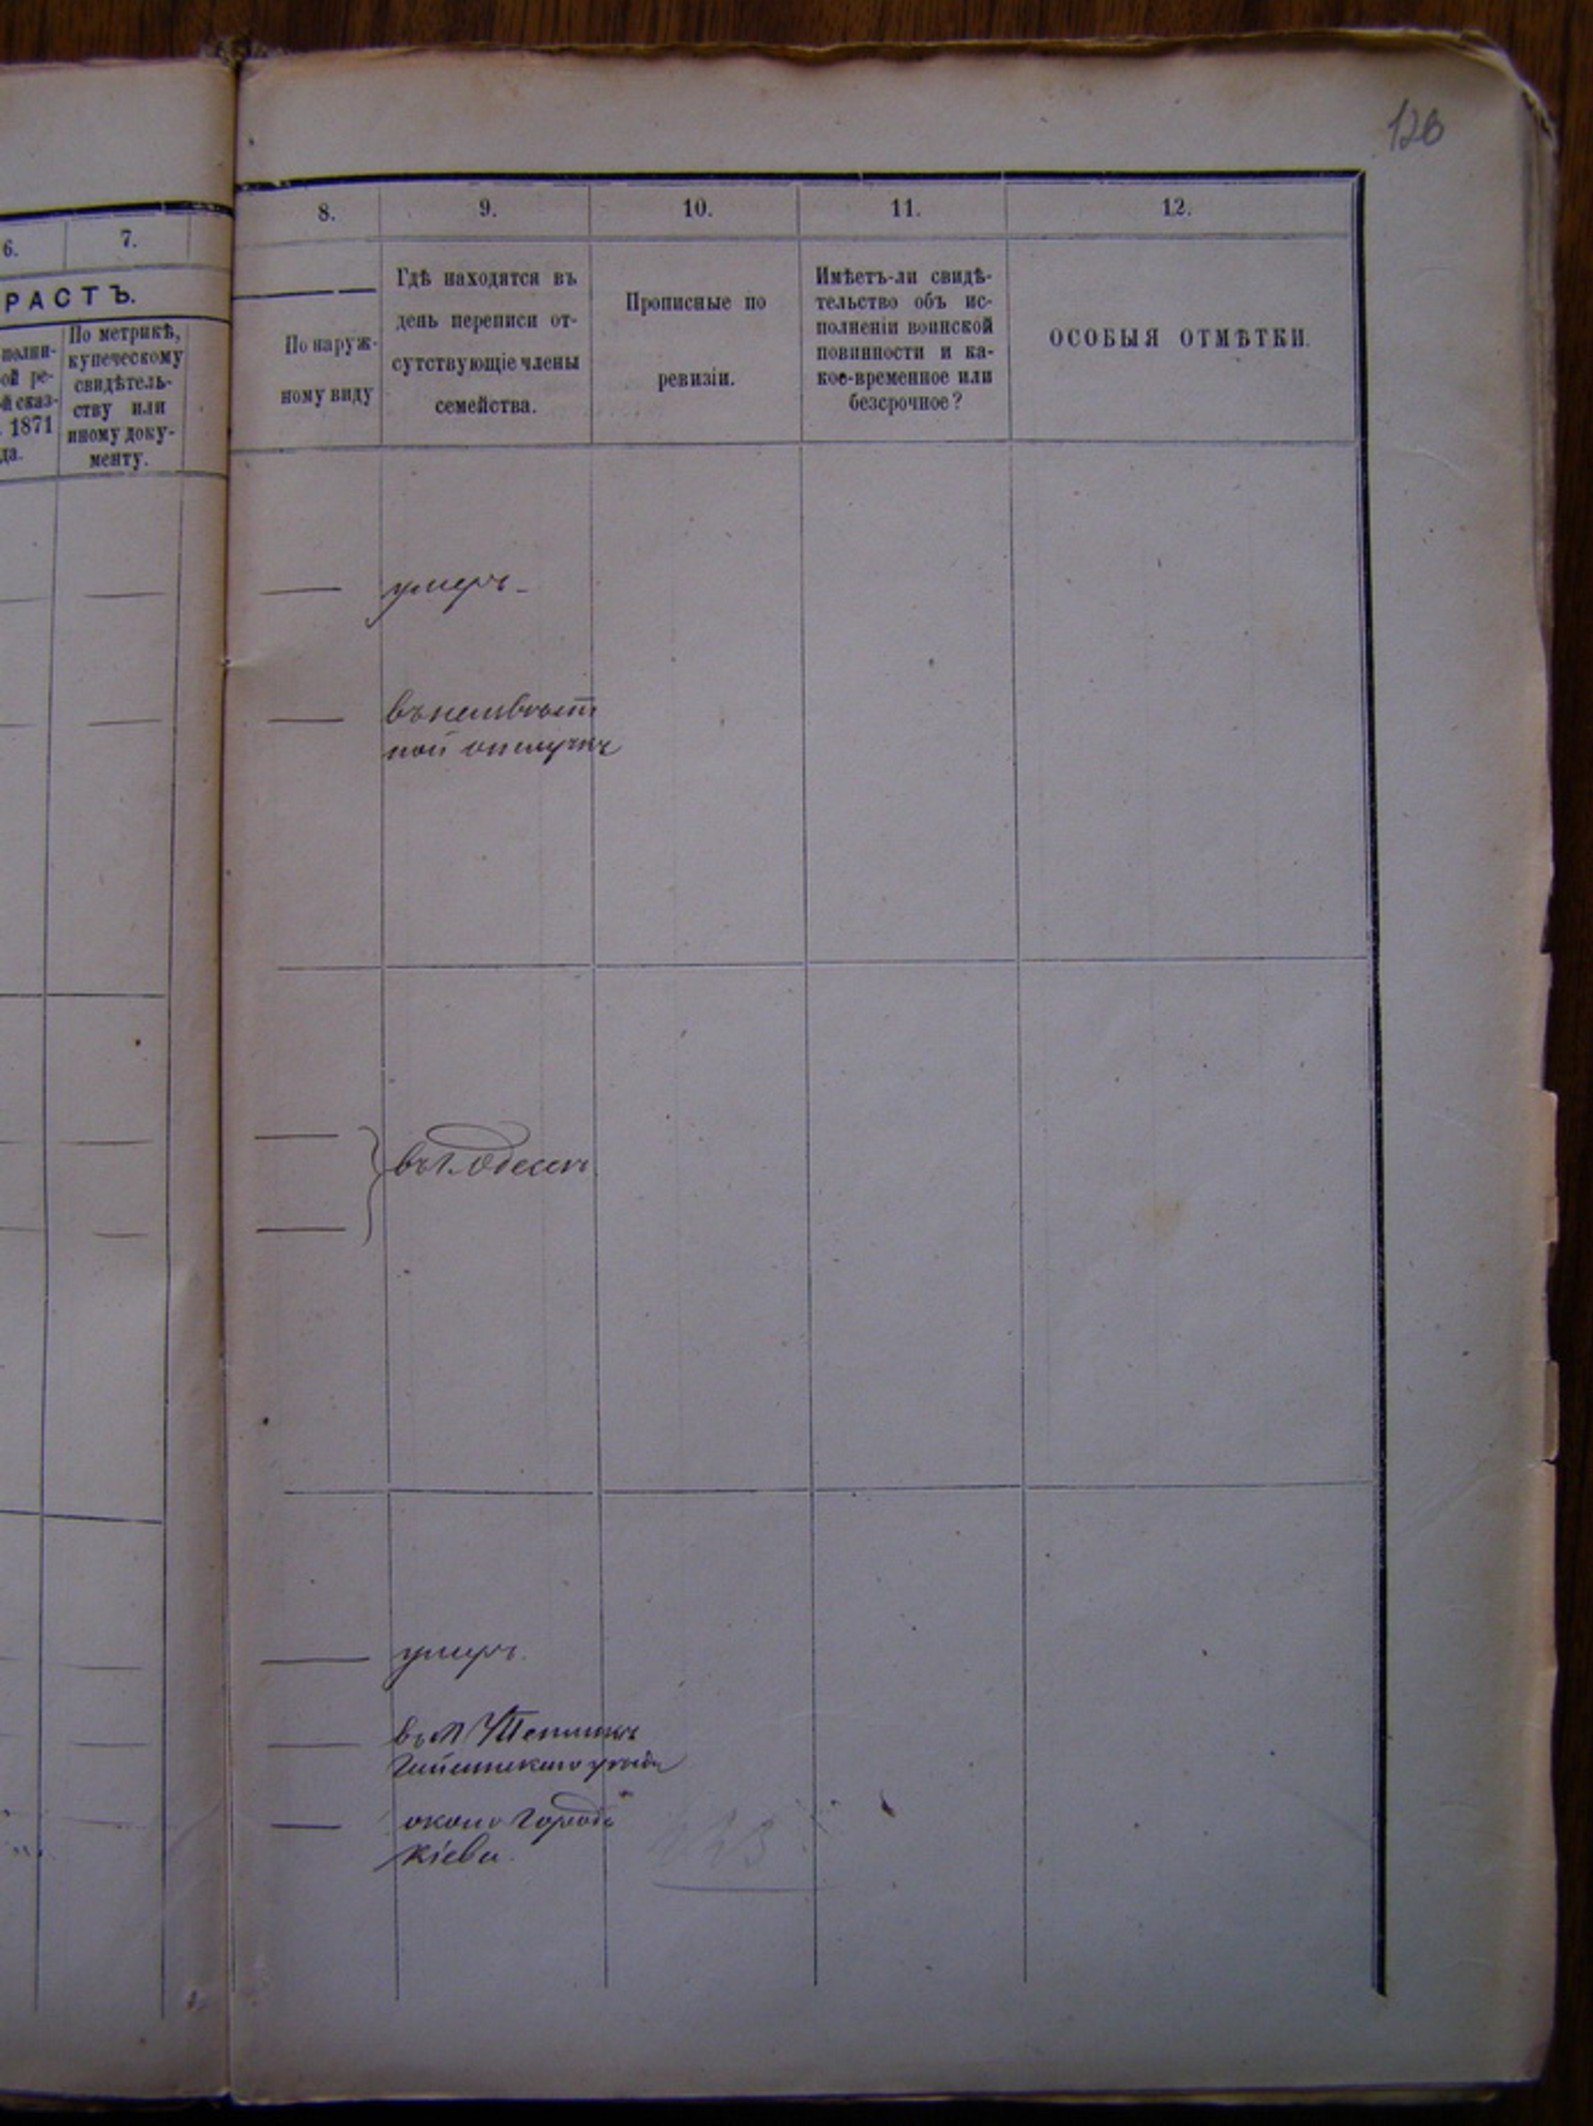 126
6.
7.
8.
9.
10.
11.
12.
РАСТЪ.
полни-
ой ре-
й сказ-
1871
да.
По метрикѣ,
купеческому
свидѣтель-
ству или
иному доку-
менту.
По наруж-
ному виду
Гдѣ находятся въ
день переписи от-
сутствующіе члены
семейства.
Прописные по
ревизіи.
Имѣетъ-ли свидѣ-
тельство объ ис-
полненіи воинской
повинности и ка-
кое-временное или
безсрочное?
ОСОБЫЯ ОТМѢТКИ.
умеръ
въ неизвѣст
ной отлучкѣ
въ г. Одессѣ
умеръ.
въ М Тепликѣ
Гайсинскаго уѣзда
около города
Кіева.